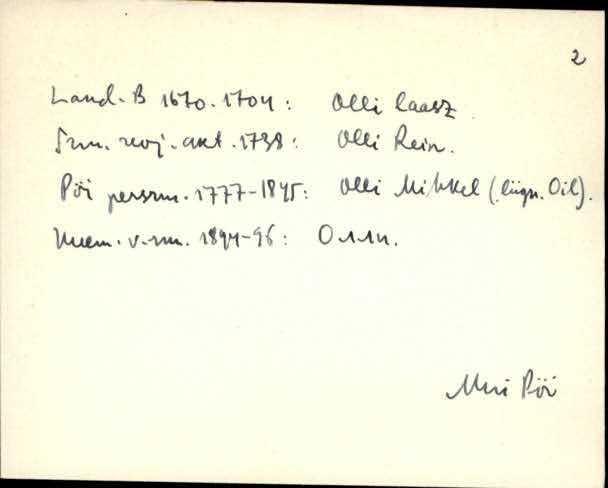 2
Land. B 1670. 1704: Olli Laasz
rm. revj. akt. 1738: Olli Rein.
Pöi persrm. 1777-1845: Olli Mihkel (liign. Oil).
v. rm. 1894-96: Олли.
Pöi